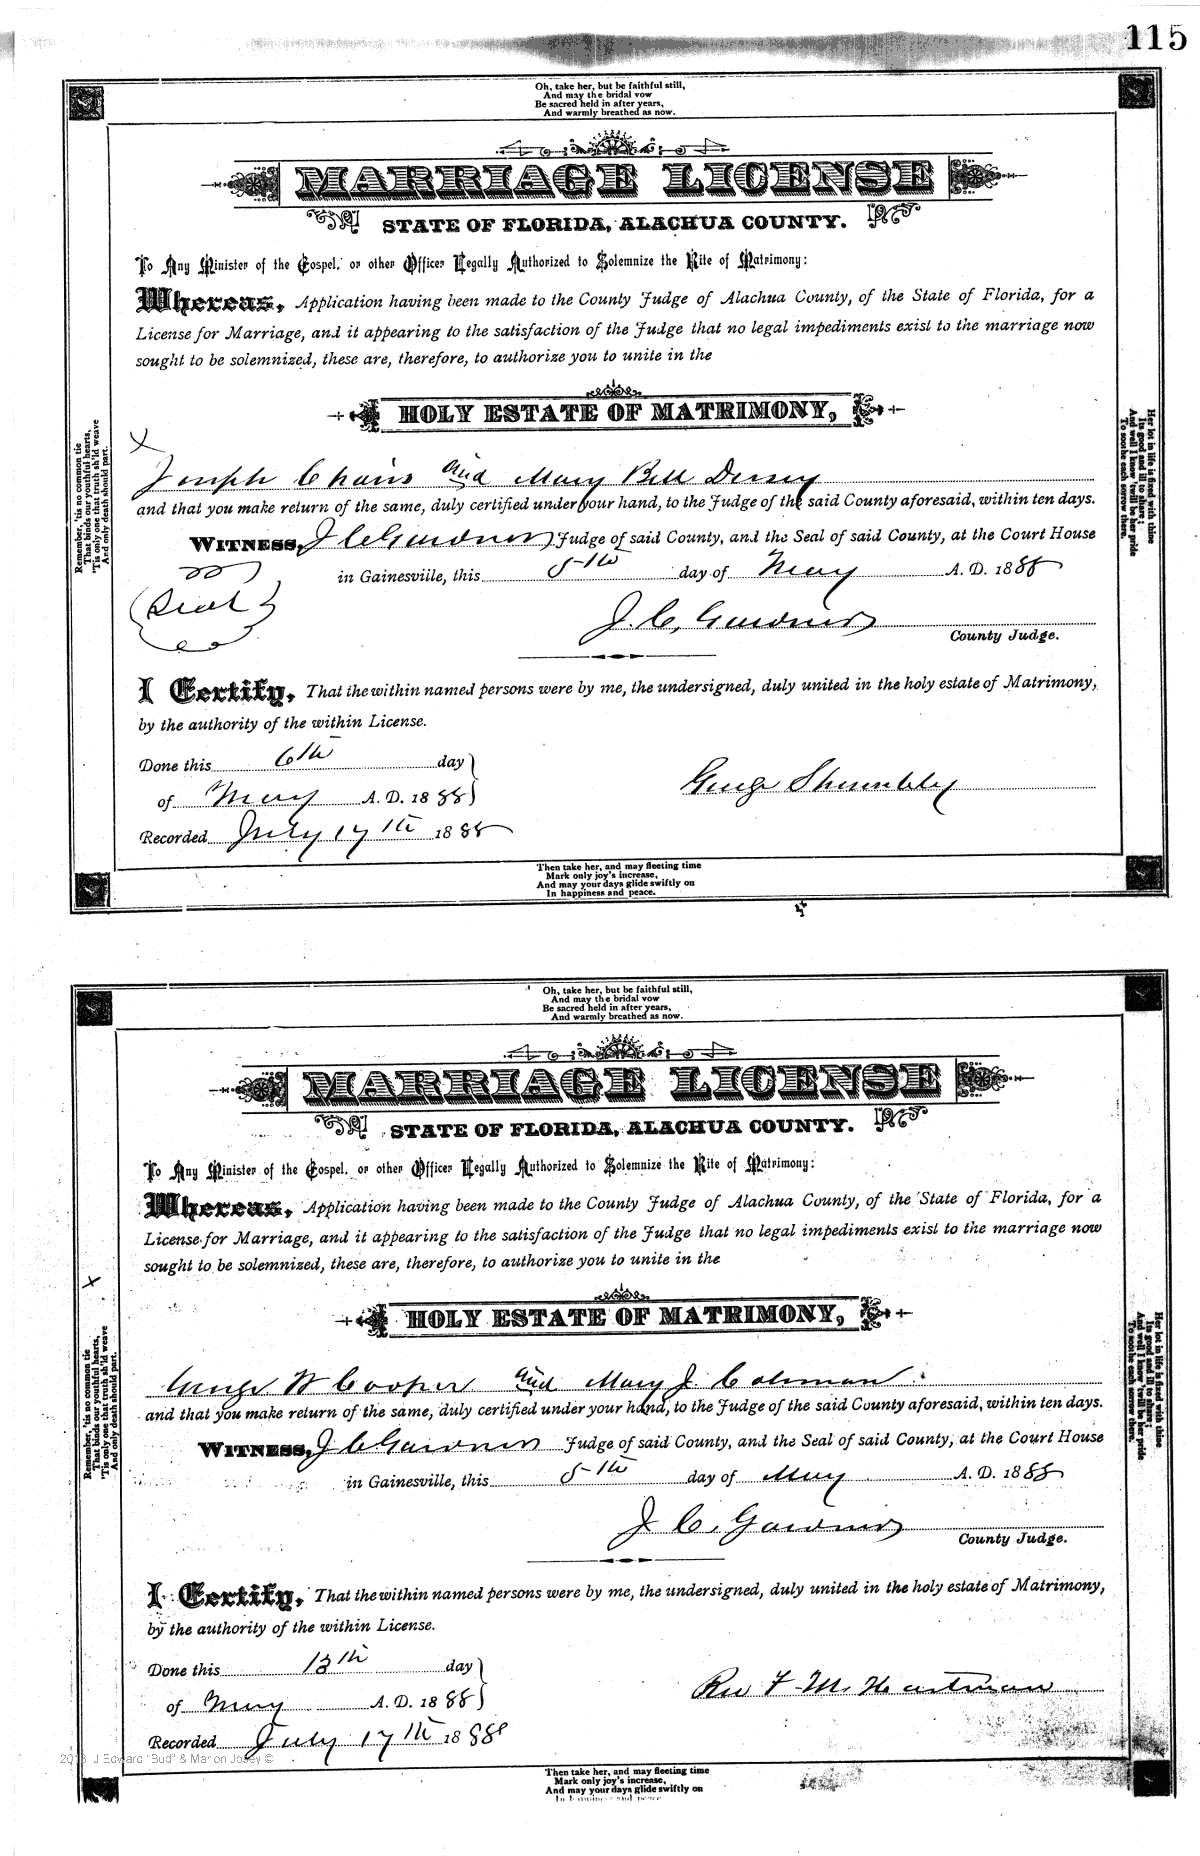 115
Oh, take her, but be faithful still,
And may the bridal vow
Be sacred held in after years,
And warmly breathed as now.
MARRIAGE LICENSE
STATE OF FLORIDA, ALACHUA COUNTY.
To Any Minister of the Gospel, or other Officer Legally Authorized to Solemnize the Rite of Matrimony:
Whereas, Application having been made to the County Judge of Alachua County, of the State of Florida, for a
License for Marriage, and it appearing to the satisfaction of the Judge that no legal impediments exist to the marriage now
sought to be solemnized, these are, therefore, to authorize you to unite in the
HOLY ESTATE OF MATRIMONY,
X
Joseph Chairs and Mary Bell Dorsey
and that you make return of the same, duly certified under your hand, to the Judge of the said County aforesaid, within ten days.
WITNESS, J C Gardner Judge of said County, and the Seal of said County, at the Court House
in Gainesville, this 5th day of May A. D. 1888
(Seal)
J. C. Gardner
County Judge.
I Certify, That the within named persons were by me, the undersigned, duly united in the holy estate of Matrimony,
by the authority of the within License.
Done this 6th day
of May A. D. 1888
George
Recorded July 17th 1888
Remember, 'tis no common tie
That binds our youthful hearts,
'Tis only one that truth sh'ld weave
And only death should part.
Her lot in life is fixed with thine
Its good and ill to share;
And well I know 'twill be her pride
To soothe each sorrow there.
Then take her, and may fleeting time
Mark only joy's increase,
And may your days glide swiftly on
In happiness and peace.
Oh, take her, but be faithful still,
And may the bridal vow
Be sacred held in after years,
And warmly breathed as now.
MARRIAGE LICENSE
STATE OF FLORIDA, ALACHUA COUNTY.
To Any Minister of the Gospel, or other Officer Legally Authorized to Solemnize the Rite of Matrimony:
Whereas, Application having been made to the County Judge of Alachua County, of the State of Florida, for a
License for Marriage, and it appearing to the satisfaction of the Judge that no legal impediments exist to the marriage now
sought to be solemnized, these are, therefore, to authorize you to unite in the
X
HOLY ESTATE OF MATRIMONY,
George W Cooper and Mary J Coleman
and that you make return of the same, duly certified under your hand, to the Judge of the said County aforesaid, within ten days.
WITNESS, J C Gardner Judge of said County, and the Seal of said County, at the Court House
in Gainesville, this 5th day of May A. D. 1888
J. C. Gardner
County Judge.
I Certify, That the within named persons were by me, the undersigned, duly united in the holy estate of Matrimony,
by the authority of the within License.
Done this 13th day
Rev F. M. Hartman
of May A. D. 1888
Recorded July 17th 1888
2013 J Edward "Bud" & Marion Josey ©
Remember, 'tis no common tie
That binds our youthful hearts,
'Tis only one that truth sh'ld weave
And only death should part.
Her lot in life is fixed with thine
Its good and ill to share;
And well I know 'twill be her pride
To soothe each sorrow there.
Then take her, and may fleeting time
Mark only joy's increase,
And may your days glide swiftly on
In happiness and peace